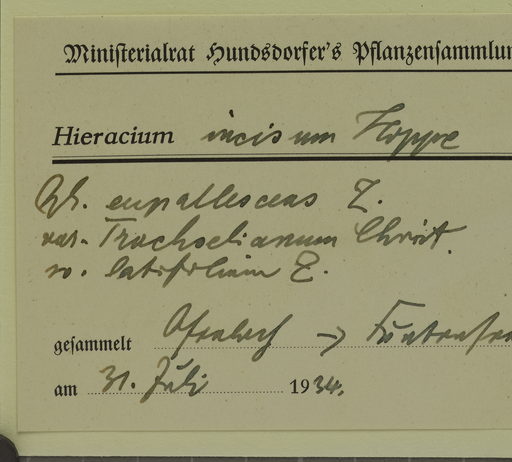 Ministerialrat Hundsdorfer's Pflanzensammlun
Hieracium incisum Hoppe
eupallescens Z.
var. Trachselianum Christ.
latifolium Z.
gesammelt →
am 31. Juli 1934.